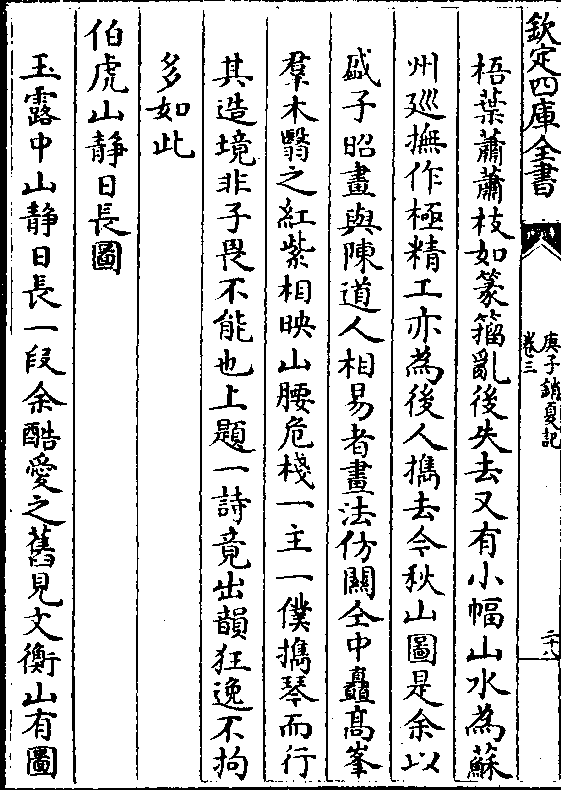 欽定四庫全書
庚子銷夏記
卷三
二十八
梧葉蕭蕭枝如篆籀亂後失去又有小幅山水為蘇
州廵撫作極精工亦為後人攜去今秋山圖是余以
盛子昭畫與陳道人相易者畫法仿關仝中矗高峯
羣木翳之紅紫相映山腰危棧一主一僕攜琴而行
其造境非子畏不能也上題一詩竟出韻狂逸不拘
多如此
伯虎山静日長圖
玉露中山静日長一段余酷愛之舊見文衡山有圖